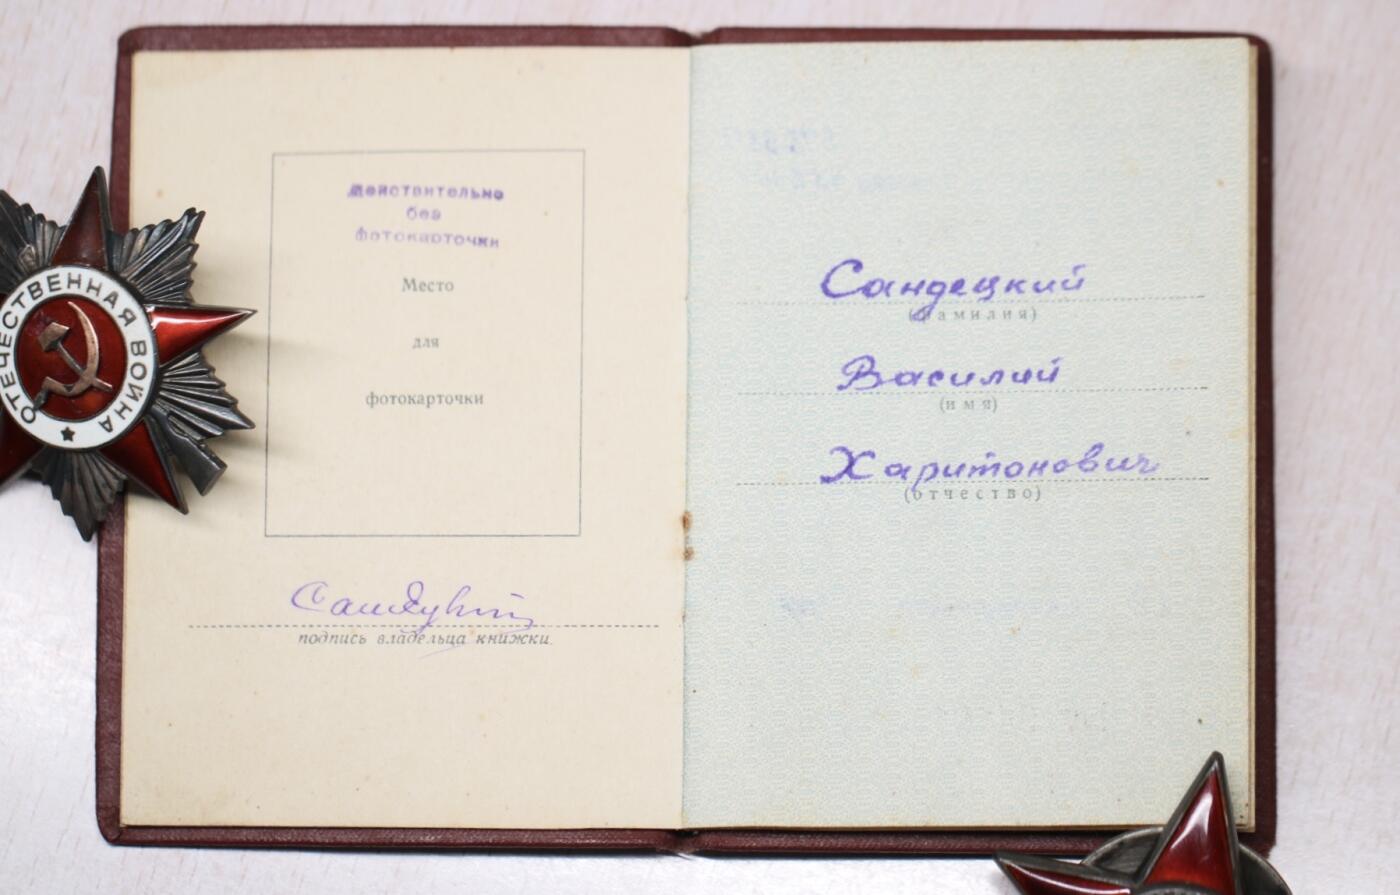 ОТЕЧЕСТВЕННАЯ ВОЙНА
Действительно
без
фотокарточки
Место
для
фотокарточки
подпись владельца книжки.
Сандецкий
(фамилия)
Василий
(имя)
Харитонович
(отчество)